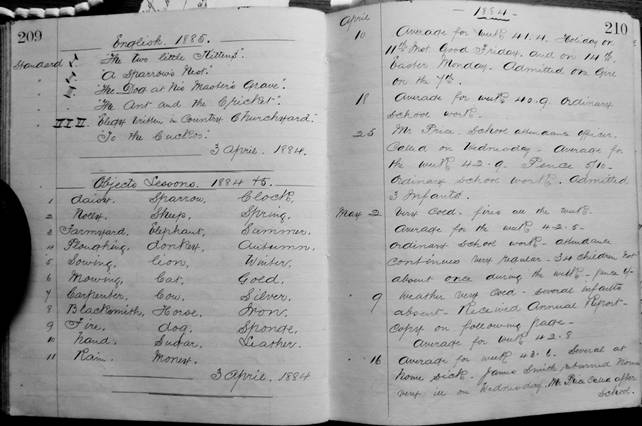 209
English. 1885.
Standard I. "The two little Kittens".
"A Sparrow's Nest".
"The Dog at his Master's Grave".
"The Ant and the Cricket".
"Elegy Written in Country Churchyard".
"To the Cuckoo".
3 April. 1884.
Objects Lessons. 1884 + 5.
1 daisy. Sparrow. Clock.
2 Holly. Sheep. Spring.
3 Farmyard. Elephant. Summer.
4 Ploughing. donkey. Autumn.
5 Sowing. lion. Winter.
6 Mowing. Cat. Gold.
7 Carpenter. Cow. Silver.
8 Blacksmith. Horse. Iron.
9 Fire. dog. Sponge.
10 hand. Sugar. Leather.
11 Rain. Money.
3 April. 1884
210
1884.
April
10 Average for week 41.4. Holiday on
11th Inst. Good Friday. and on 14th
Easter Monday. Admitted one Girl
on the 7th.
18 Average for week 40.9. Ordinary
School work.
25 Mr Price. School attendance officer.
Called on Wednesday. Average for
the week 42.9. Pence 5/10.
Ordinary school work. Admitted
3 Infants.
May 2 Very Cold. fires all the week
Average for the week 42.5.
ordinary school work. attendance
continues very regular. 34 children not
absent once during the week. pence
9 Weather very cold. several infants
absent. Received Annual Report.
Copy on following page.
Average for week 42.8
16 Average for week 43.6. Several at
home sick. James Smith returned home
very ill on Wednesday. Mr Price called after
School.